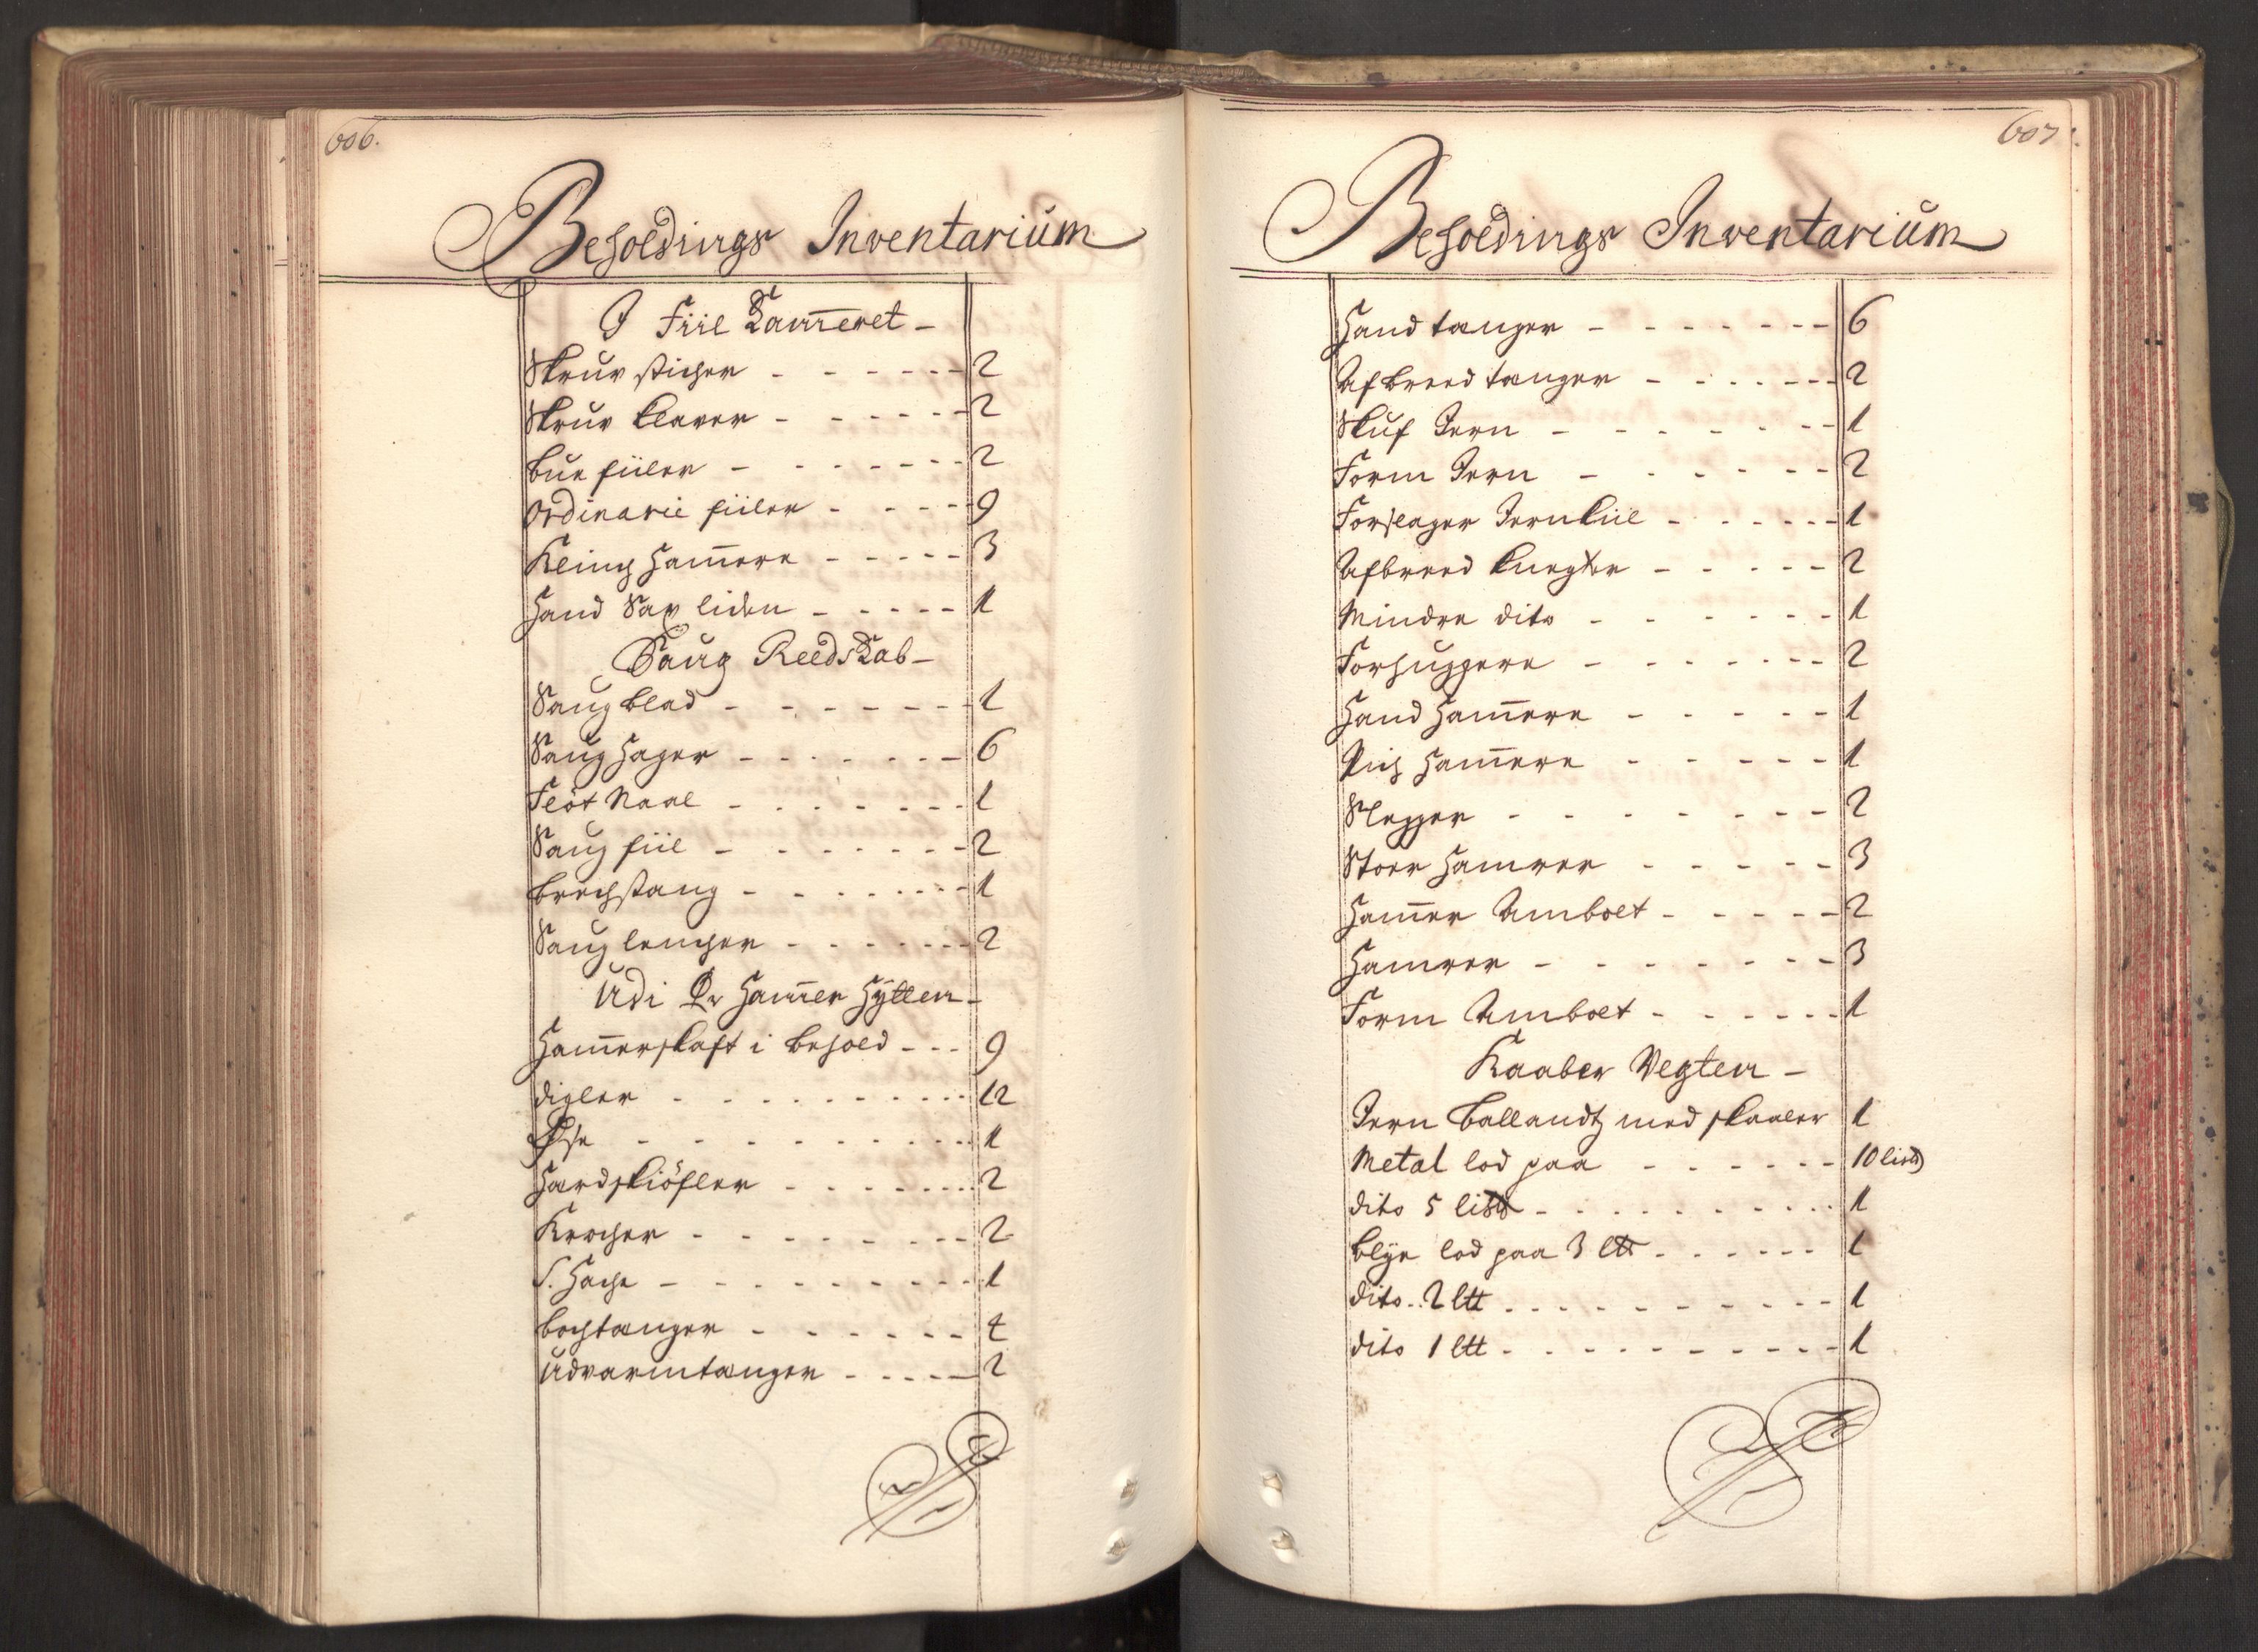 606.
Beholdings Inventarium
I Fiil Kam̄eret -
Skruv sticher - - - - - - 2
Skruv klaver - - - - - - 2
bue fiiler - - - - - - - 2
Ordinarie fiiler - - - - - 9
Kling Ham̄ere - - - - - 3
Hand Sax liden - - - - - 1
Saug Reedskab -
Saug blad - - - - - - - 1
Saug Hager - - - - - - - 6
Flöt Naal - - - - - - - 1
Saug fiil - - - - - - - 2
brechstang - - - - - - - 1
Saug lencher - - - - - - - 2
Udi Ham̄er Hytten -
Ham̄erskaft i behold - - - 9
digler - - - - - - - - - - 12
Öse - - - - - - - - - - 1
Hardskiöfler - - - - - - - 2
Krocher - - - - - - - - 2
S. Hache - - - - - - - - - 1
bochtanger - - - - - - 4
Udvarmtanger - - - - - 2
607.
Beholdings Inventarium
Hand tanger - - - - - - - 6
Afbreed tanger - - - - - - - 2
Skuf Jern - - - - - - - 1
Form Jern - - - - - - 2
Forslager Jernkiil - - - - - - 1
Afbreed knegter - - - - - 2
Mindre dito - - - - - - 1
Forhuggere - - - - - - - 2
Hand Ham̄ere - - - - - 1
Pich Ham̄ere - - - - - 1
Slegger - - - - - - - 2
Stoer Hamrer - - - - - 3
Ham̄er Ambolt - - - - - 2
Hamrer - - - - - - - 3
Form Ambolt - - - - - - 1
Kaaber Vegten -
Jern Ballandtz med skaaler 1
Metal lod paa - - - - - - 10 lis℔
dito 5 lis℔ - - - - - - - - - - 1
blye lod paa 3 l℔ - - - - - - 1
dito.. 2 l℔ - - - - - - - - - - 1
dito 1 l℔ - - - - - - - - - - 1